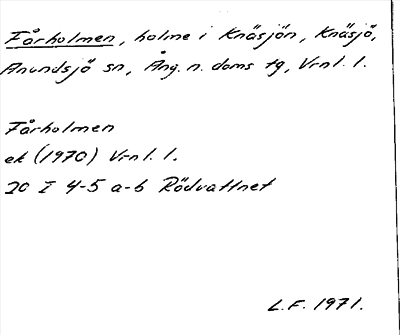 Fårholmen, holme i Knäsjön, Knäsjö,
Anundsjö sn, Ång. n. doms tg, Vrnl. l.
Fårholmen
ek (1970) Vrnl. l.
20 I 4-5 a-b Rödvattnet
L.F. 1971.